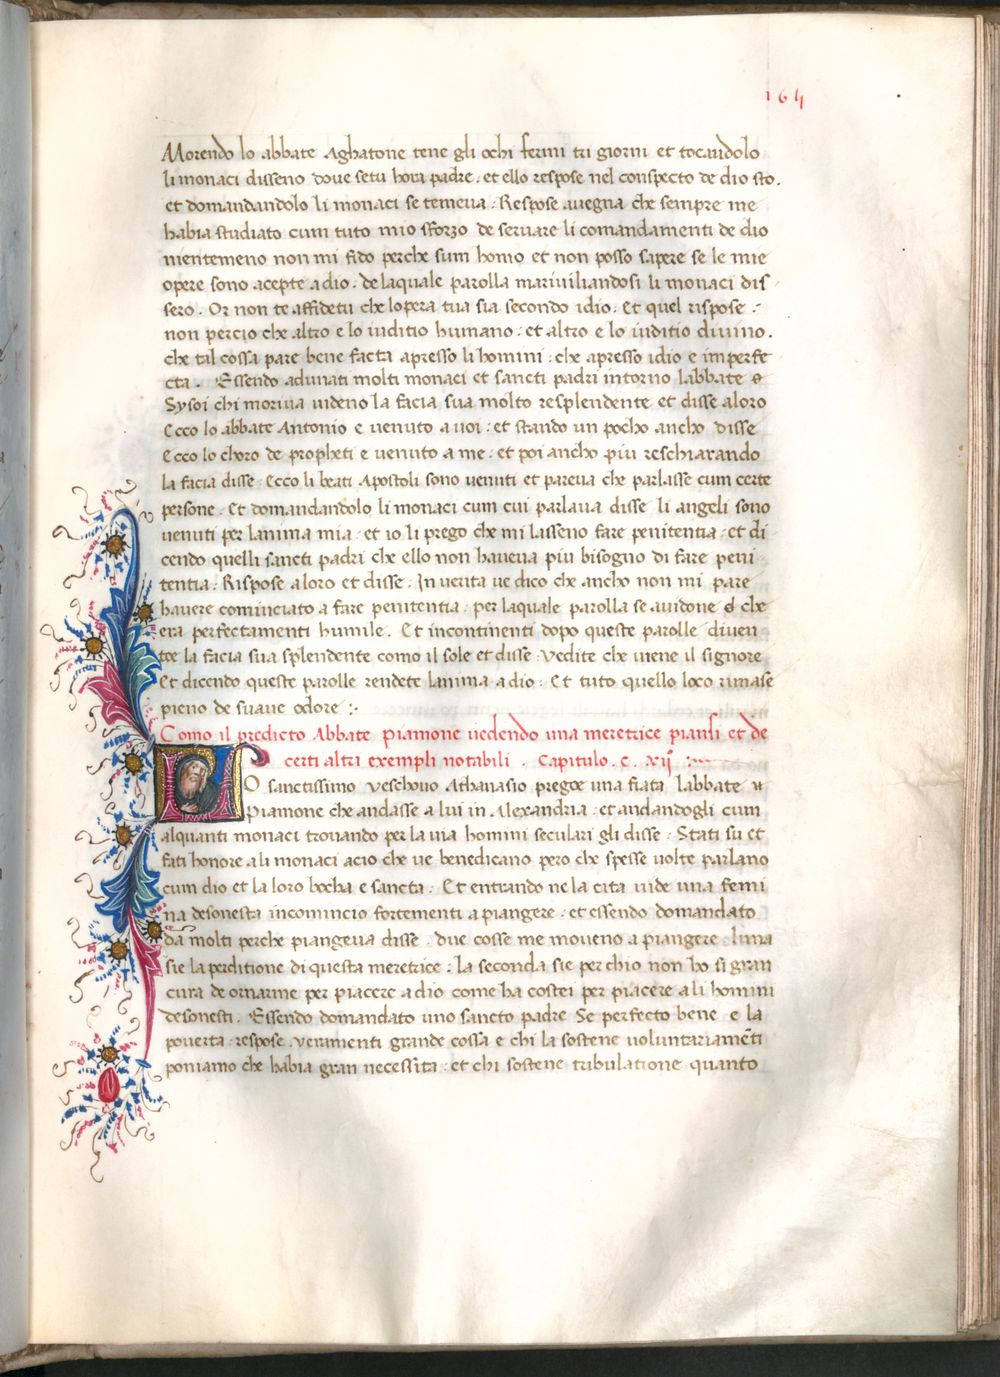 164
Morendo lo abbate Aghatone tene gli ochi fermi tri giorni et tocandolo
li monaci disseno doue setu hora padre. et ello respose nel conspecto de dio sto.
et domandandolo li monaci se temeua. Respose auegna che sempre me
habia studiato cum tuto mio sforzo de seruare li comandamenti de dio
nientemeno non mi fido perche sum homo et non posso sapere se le mie
opere sono acepte a dio. de laquale parolla mariuiliandosi li monaci dis
sero. Or non te affidetu che lopera tua sia secondo idio. Et quel rispose :
non percio che altro e lo iuditio humano. et altro e lo iuditio diuino.
che tal cossa pare bene facta apresso li homini. che apresso idio e imperfe
cta. Essendo adunati molti monaci et sancti padri intorno labbate
Sysoi chi moriua uideno la facia sua molto resplendente et disse a loro
Ecco lo abbate Antonio e uenuto a uoi. et stando un pocho ancho disse
Ecco lo choro de propheti e uenuto a me. et poi ancho piu reschiarando
la facia disse. Ecco li beati Apostoli sono uenuti et pareua che parlasse cum certe
persone. Et domandandolo li monaci cum cui parlaua disse li angeli sono
uenuti per lanima mia. et io li prego che mi lasseno fare penitentia. et di
cendo quelli sancti padri che ello non haueua piu bisogno di fare peni
tentia. Rispose a loro et disse. In uerita ue dico che ancho non mi pare
hauere cominciato a fare penitentia. per laquale parolla se auidone che
era perfectamenti humile. Et incontinenti dopo queste parolle diuen
toe la facia sua splendente como il sole et disse. Vedite che uiene il signore
Et dicendo queste parolle rendete lanima a dio. Et tuto quello loco rimase
pieno de suaue odore :.
Como il predicto Abbate piamone uedendo una meretrice piansi et de
certi altri exempli notabili. Capitulo. C. xij
O sanctissimo Veschouo Athanasio pregoe una fiata labbate
Piamone che andasse a lui in Alexandria. et andandogli cum
alquanti monaci trouando per la uia homini seculari gli disse. Stati su et
fati honore a li monaci acio che ue benedicano pero che spesse uolte parlano
cum dio et la loro bocha e sancta. Et entrando ne la cita uide una femi
na desonesta incomincio fortementi a piangere. et essendo domandato
da molti perche piangeua disse. due cosse me moueno a piangere. luna
sie la perditione di questa meretrice. la seconda sie per chio non ho si gran
cura de ornarme per piacere a dio come ha costei per piacere a li homini
desonesti. Essendo domandato uno sancto padre Se perfecto bene e la
pouerta. respose. ueramenti grande cossa e chi la sostene uoluntariamēti
poniamo che habia gran necessita. et chi sostene tribulatione quanto